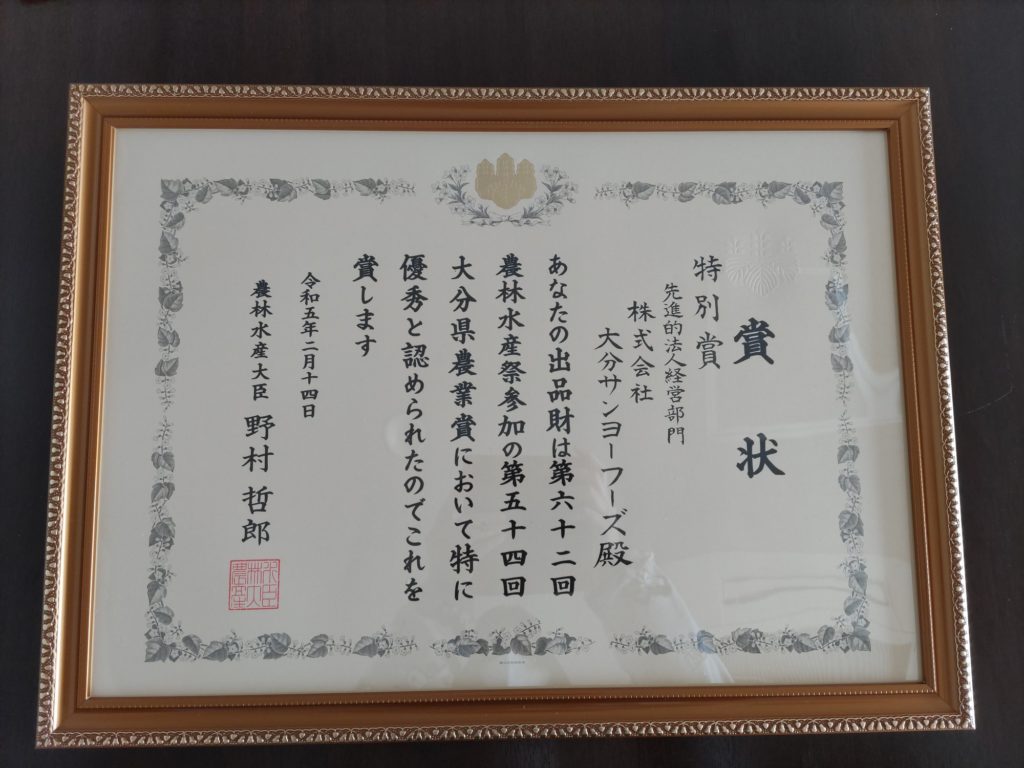 賞状
特別賞
先進的法人経営部門
株式会社
大分サンヨーフーズ殿
あなたの出品財は第六十二回
農林水産祭参加の第五十四回
大分県農業賞において特に
優秀と認められたのでこれを
賞します
令和五年二月十四日
農林水産大臣 野村哲郎